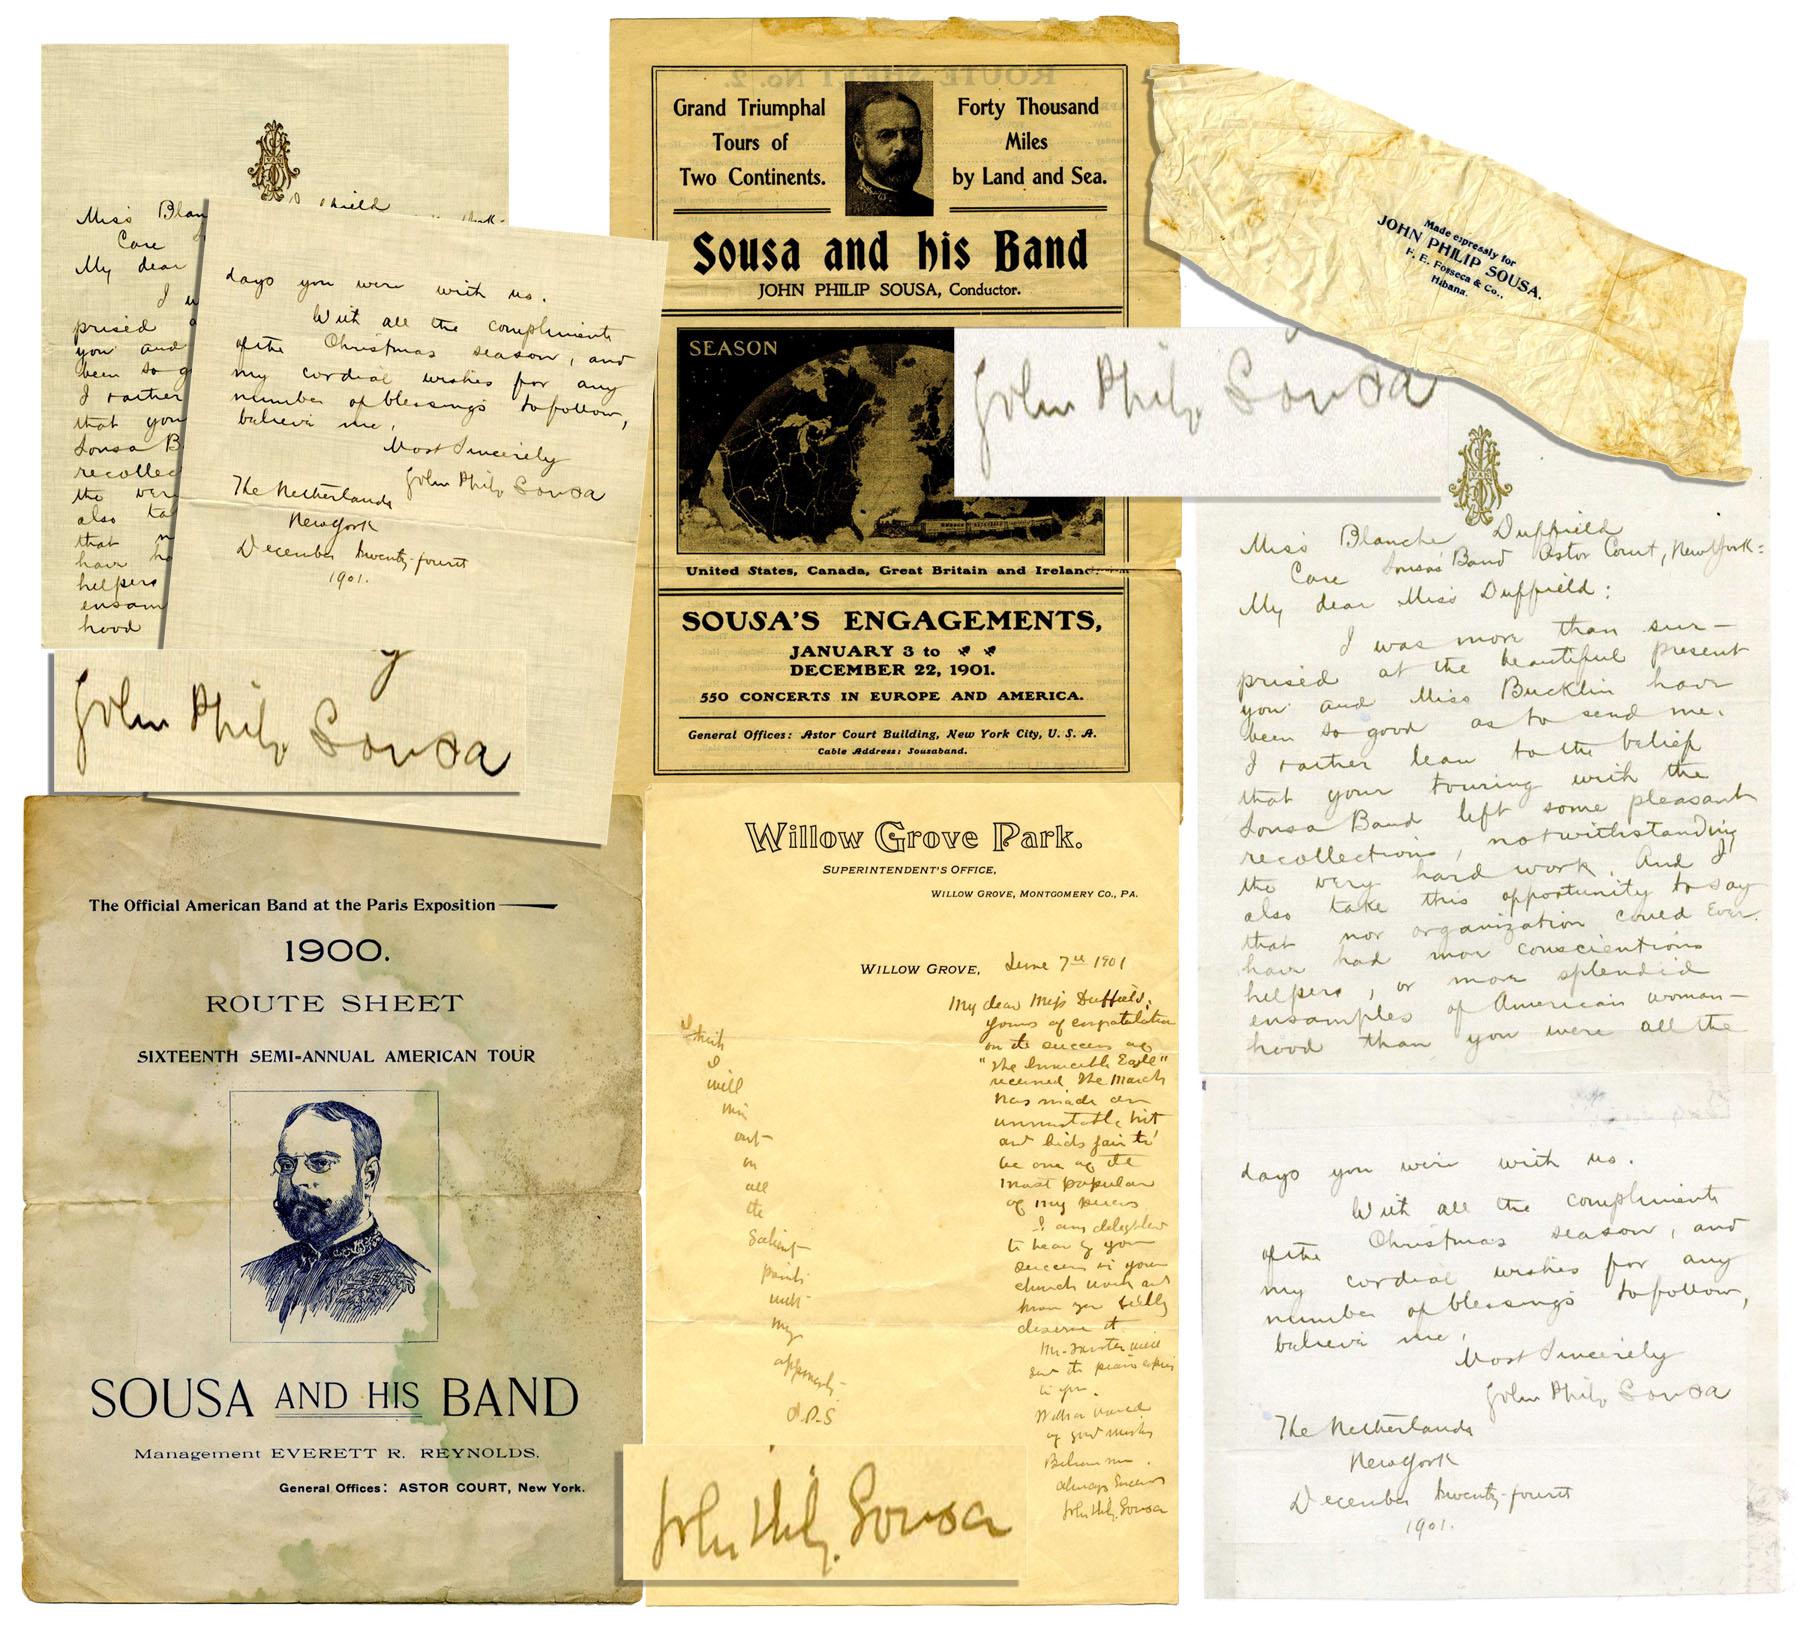 Miss Blan
Care
My dear
I w
prised a
you and
been so g
I rather
that you
Sousa B
recollec
the very
also ta
that n
have h
helpers
ensam
hood
days you were with us.
With all the compliments
of the Christmas season, and
my cordial wishes for any
number of blessings to follow,
believe me,
Most Sincerely
John Philip Sousa
The Netherlands
New York
December twenty-fourth
1901.
John Philip Sousa
ROUTE SHEET No. 2.
Grand Triumphal
Tours of
Two Continents.
Forty Thousand
Miles
by Land and Sea.
Sousa and his Band
JOHN PHILIP SOUSA, Conductor.
SEASON
United States, Canada, Great Britain and Ireland.
SOUSA'S ENGAGEMENTS,
JANUARY 3 to
DECEMBER 22, 1901.
550 CONCERTS IN EUROPE AND AMERICA.
General Offices: Astor Court Building, New York City, U. S. A.
Cable Address: Sousaband.
John Philip Sousa
Made expressly for
JOHN PHILIP SOUSA.
F. E. Fonseca & Co.,
Habana.
Miss Blanche Duffield
Care Sousa's Band Astor Court, New York:
My dear Miss Duffield:
I was more than sur-
prised at the beautiful present
you and Miss Bucklin have
been so good as to send me.
I rather lean to the belief
that your touring with the
Sousa Band left some pleasant
recollections, notwithstanding
the very hard work. And I
also take this opportunity to say
that nor organization could ever
have had more conscientious
helpers, or more splendid
ensamples of American woman-
hood than you were all the
days you were with us.
With all the compliments
of the Christmas season, and
my cordial wishes for any
number of blessings to follow,
believe me,
Most Sincerely
John Philip Sousa
The Netherlands
New York
December twenty-fourth
1901.
The Official American Band at the Paris Exposition
1900.
ROUTE SHEET
SIXTEENTH SEMI-ANNUAL AMERICAN TOUR
SOUSA AND HIS BAND
Management EVERETT R. REYNOLDS.
General Offices: ASTOR COURT, New York.
Willow Grove Park.
SUPERINTENDENT'S OFFICE,
WILLOW GROVE, MONTGOMERY CO., PA.
WILLOW GROVE, June 7th 1901
My dear Miss Duffield:
Yours of congratulation
on the success of
"The Invincible Eagle"
received. The March
has made an
unmistakable hit
and bids fair to
be one of the
most popular
of my
I am delighted
to hear of your
success in your
church work and
know you fully
deserve it.
Mr. will
to you.
of good wishes
Believe me.
always Sincerely
John Philip Sousa
I think
I
will
win
out
on
all
the
Salient
points
with
my
opponents
J.P.S
John Philip Sousa